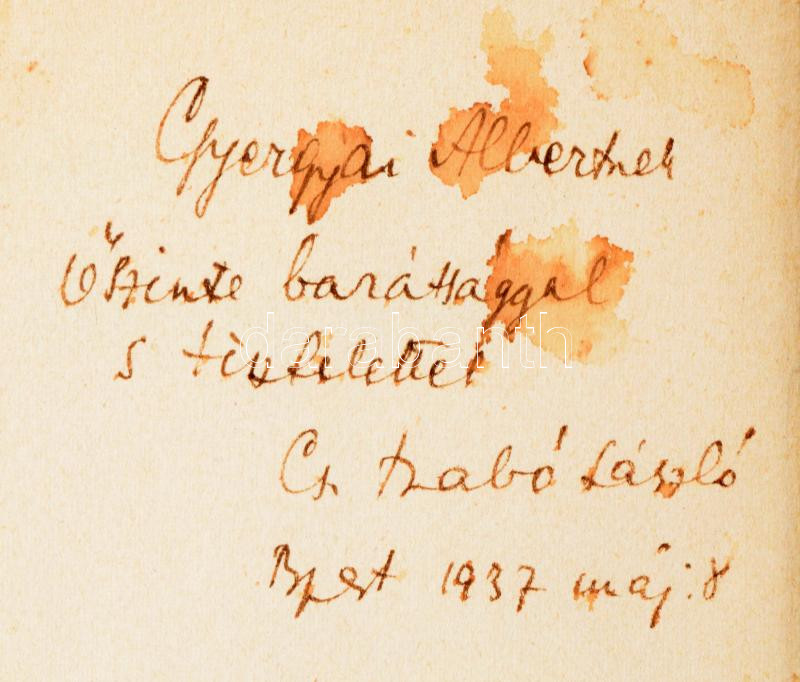 Gyergyai Albertnek
őszinte barátsággal
s tisztelettel
darabanth
Cs. Szabó László
Bpest 1937 máj: 8